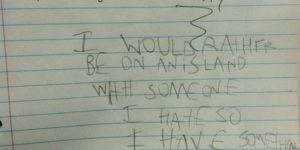 I WOULD RATHER
BE ON AN ISLAND
WITH SOMEONE
I HATE SO
I HAVE SOMETHIN